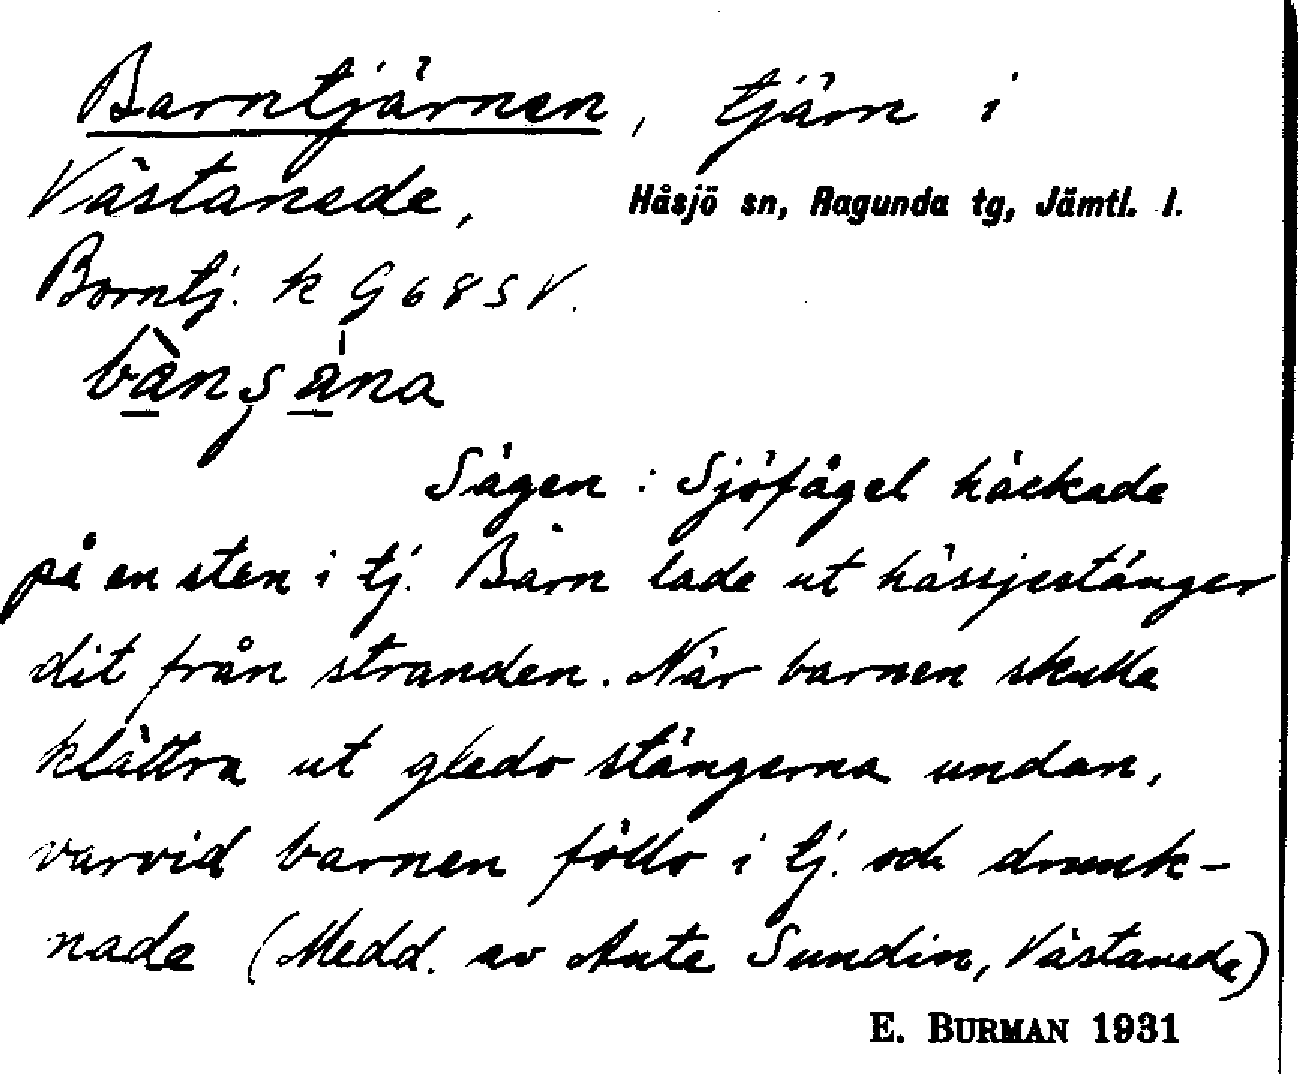 Barntjärnen, tjärn i
Västanede, Håsjö sn, Ragunda tg, Jämtl. l.
Borntj. k G 68 S V.
bànʂána
Sägen: Sjöfågel häckade
på en sten i tj. Barn lade ut hässjestänger
dit från stranden. När barnen skulle
klättra ut gledo stängerna undan,
varvid barnen föllo i tj. och drunk-
nade (Medd. av Ante Sundin, Västanede)
E. BURMAN 1931